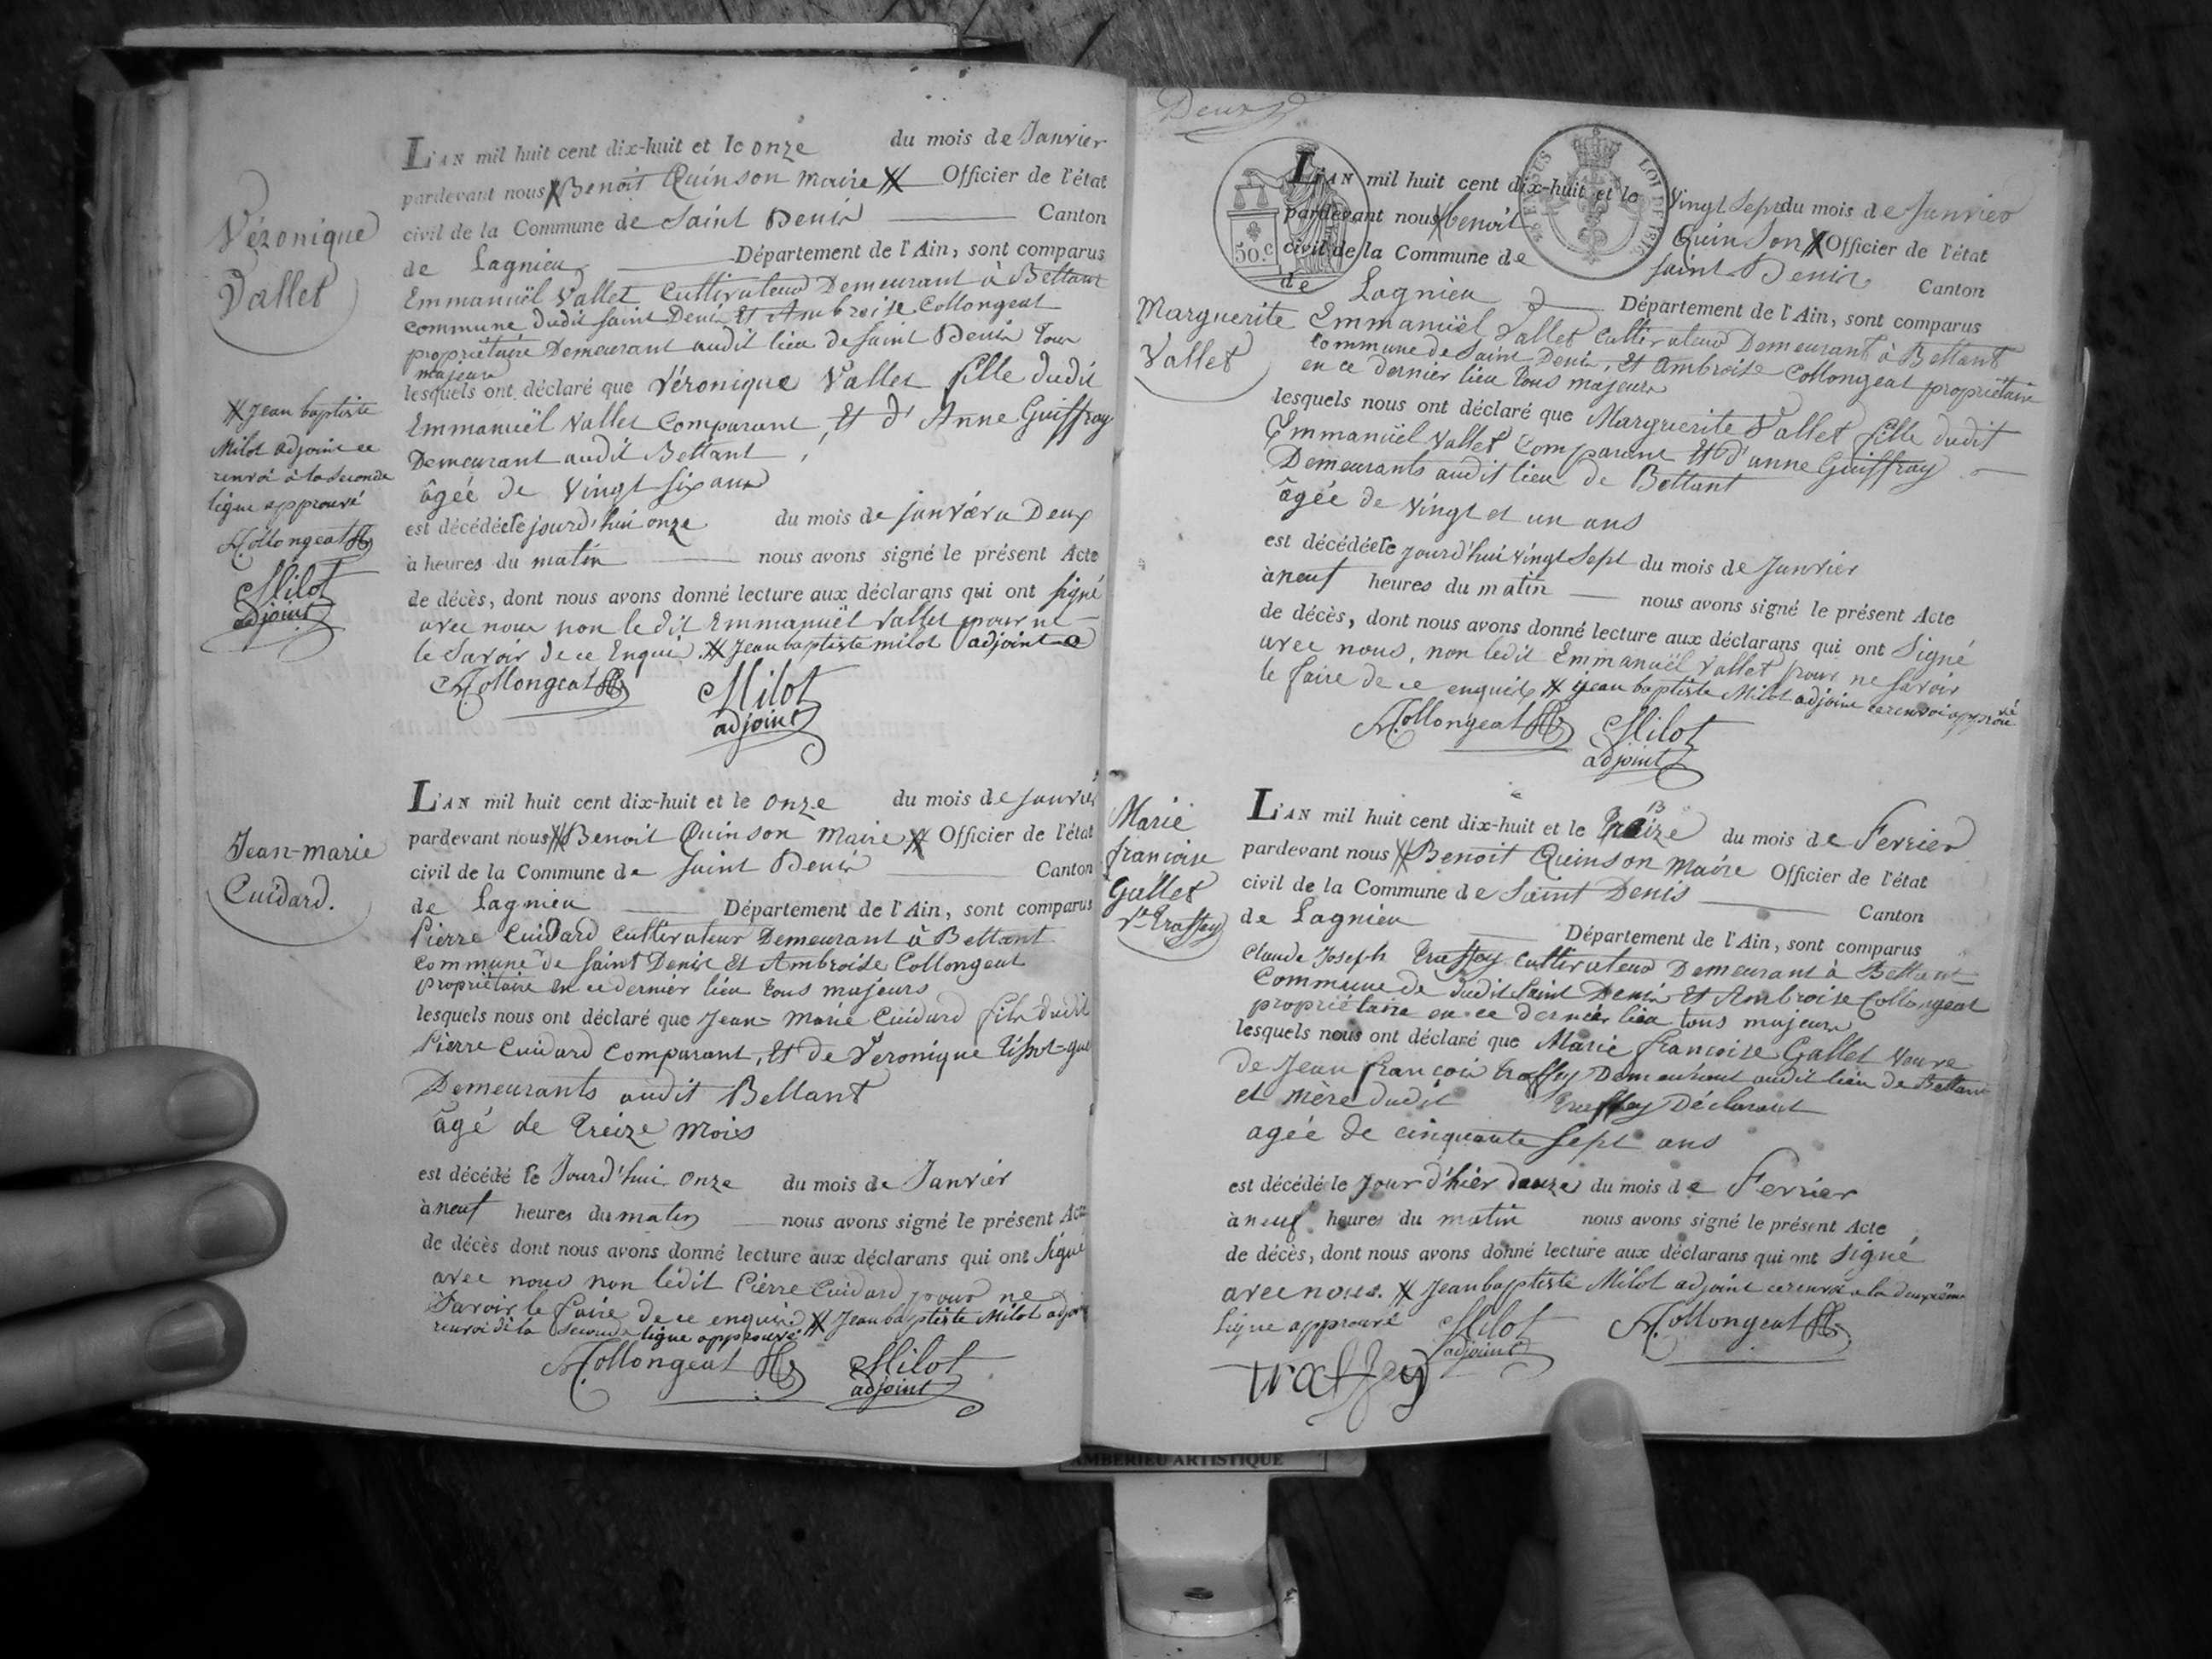 Véronique
Vallet
L'AN mil huit cent dix-huit et le onze du mois de Janvier
pardevant nous X Benoit Quinson maire X Officier de l'état
civil de la Commune de Saint Denis Canton
de Lagnieu Département de l'Ain, sont comparus
Emmanuël Vallet Cultivateur Demeurant à Bettant
commune dudit saint Denis Et Ambroise Collongeat
propriétaire Demeurant audit lieu de saint Denis tous
majeurs
lesquels ont déclaré que Véronique Vallet fille dudit
Emmanuël Vallet Comparant, Et d'Anne Guiffray
Demeurant audit Bettant,
âgée de Vingt six ans
est décédée le jourd'hui onze du mois de janvier a Deux
à heures du matin nous avons signé le présent Acte
de décès, dont nous avons donné lecture aux déclarans qui ont signé
avec nous non le dit Emmanuël Vallet pour ne
le Savoir de ce Enquis. X Jean baptiste milot adjoint
ACollongeat Milot
adjoint
X Jean baptiste
Milot adjoint ce
renvoi à la seconde
ligne approuvé
ACollongeat
Milot
adjoint
Jean-marie
Cuidard.
L'AN mil huit cent dix-huit et le onze du mois de Janvier
pardevant nous X Benoit Quinson Maire X Officier de l'état
civil de la Commune de Saint Denis Canton
de Lagnieu Département de l'Ain, sont comparus
Pierre Cuidard Cultivateur Demeurant à Bettant
commune de saint Denis Et Ambroise Collongeat
propriétaire en ce dernier lieu tous majeurs
lesquels nous ont déclaré que Jean-Marie Cuidard fils dudit
Pierre Cuidard Comparant, Et de Veronique
Demeurants audit Bettant
âgé de treize mois
est décédé le Jourd'hui onze du mois de Janvier
à neuf heures du matin nous avons signé le présent Acte
de décès dont nous avons donné lecture aux déclarans qui ont signé
avec nous non lédit Pierre Cuidard pour ne
Savoir le faire de ce enquis X Jean baptiste Milot adjoint
renvoi de la seconde ligne approuvé
ACollongeat Milot
adjoint
Deux
50.c
25 EN SUS LOI DE 1816
Marguerite
Vallet
L'AN mil huit cent dix-huit et le Vingt Sept du mois de Janvier
pardevant nous X benoit Quinson X Officier de l'état
civil de la Commune de saint Denis Canton
de Lagnieu Département de l'Ain, sont comparus
Emmanuël Vallet Cultivateur Demeurant à Bettant
Commune de Saint Denis, Et Ambroise Collongeat propriétaire
en ce dernier lieu tous majeurs
lesquels nous ont déclaré que Marguerite Vallet fille dudit
Emmanuël Vallet Comparant Et d'anne Guiffray
Demeurants audit lieu de Bettant
âgée de Vingt et un ans
est décédée le jourd'hui Vingt Sept du mois de Janvier
à neuf heures du matin nous avons signé le présent Acte
de décès, dont nous avons donné lecture aux déclarans qui ont Signé
avec nous, non ledit Emmanuël Vallet pour ne savoir
le faire de ce enquis X jean baptiste Milot adjoint ce renvoi approuvé
ACollongeat Milot
adjoint
Marie
françoise
Gallet
Ve Traffay
L'AN mil huit cent dix-huit et le treize 13 du mois de Fevrier
pardevant nous X Benoit Quinson Maire Officier de l'état
civil de la Commune de Saint Denis Canton
de Lagnieu Département de l'Ain, sont comparus
Claude Joseph Traffay cultivateur Demeurant à Bettant
Commune de dudit Saint Denis Et Ambroise Collongeat
propriétaire en ce dernier lieu tous majeurs
lesquels nous ont déclaré que Marie françoise Gallet Veuve
de Jean françois traffay Demeurant audit lieu de Bettant
et mère dudit Traffay Déclarant
agée de cinquante sept ans
est décédé le Jour d'hier douze du mois de Fevrier
à neuf heures du matin nous avons signé le présent Acte
de décès, dont nous avons donné lecture aux déclarans qui ont Signé
avec nous. X Jean baptiste Milot adjoint ce renvoi a la deuxième
ligne approuvé Milot ACollongeat
adjoint
traffey
AMBERIEU ARTISTIQUE